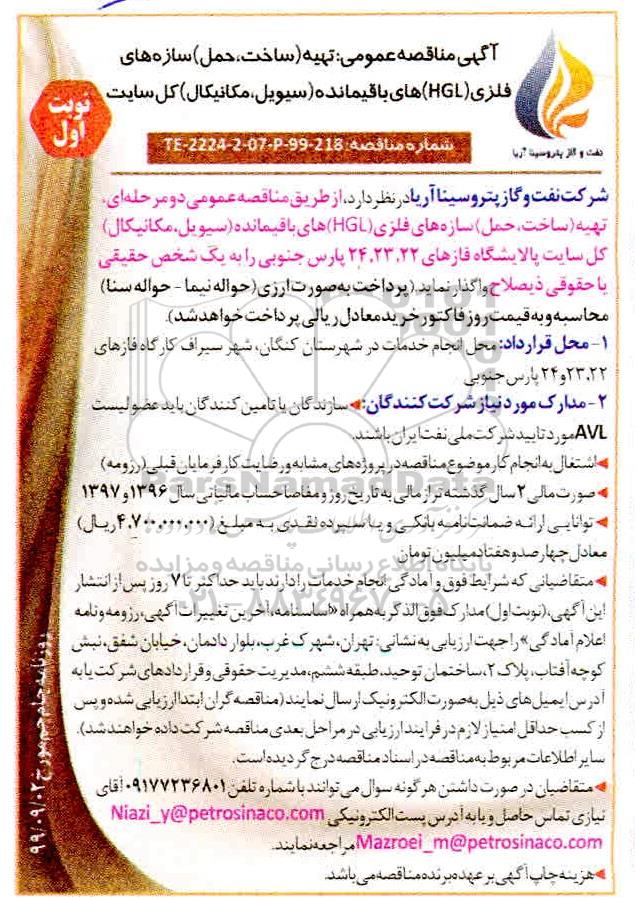 آگهی مناقصه عمومی: تهیه (ساخت، حمل) سازه‌های
فلزی (HGL) های باقیمانده (سیویل، مکانیکال) کل سایت
نوبت
اول
نفت و گاز پتروسینا آریا
شماره مناقصه: TE-2224-2-07-P-99-218
شرکت نفت و گاز پتروسینا آریا در نظر دارد، از طریق مناقصه عمومی دو مرحله‌ای،
تهیه (ساخت، حمل) سازه‌های فلزی (HGL) های باقیمانده (سیویل، مکانیکال)
کل سایت پالایشگاه فازهای ۲۲، ۲۳، ۲۴ پارس جنوبی را به یک شخص حقیقی
یا حقوقی ذیصلاح واگذار نماید (پرداخت به صورت ارزی (حواله نیما - حواله سنا)
محاسبه و به قیمت روز فاکتور خرید معادل ریالی پرداخت خواهد شد).
۱- محل قرارداد: محل انجام خدمات در شهرستان کنگان، شهر سیراف کارگاه فازهای
۲۲، ۲۳ و ۲۴ پارس جنوبی
۲- مدارک مورد نیاز شرکت کنندگان: ◄سازندگان یا تامین کنندگان باید عضو لیست
AVL مورد تایید شرکت ملی نفت ایران باشند.
◄اشتغال به انجام کار موضوع مناقصه در پروژه‌های مشابه و رضایت کارفرمایان قبلی (رزومه)
◄صورت مالی ۲ سال گذشته تراز مالی به تاریخ روز و مفاصا حساب مالیاتی سال ۱۳۹۶ و ۱۳۹۷
◄توانایی ارائه ضمانت‌نامه بانکی و یا سپرده نقدی به مبلغ (۴,۷۰۰,۰۰۰,۰۰۰ ریال)
معادل چهارصد و هفتاد میلیون تومان
◄متقاضیانی که شرایط فوق و آمادگی انجام خدمات را دارند باید حداکثر تا ۷ روز پس از انتشار
این آگهی، (نوبت اول) مدارک فوق الذکر به همراه «اساسنامه، آخرین تغییرات آگهی، رزومه و نامه
اعلام آمادگی» را جهت ارزیابی به نشانی: تهران، شهرک غرب، بلوار دادمان، خیابان شفق، نبش
کوچه آفتاب، پلاک ۲، ساختمان توحید، طبقه ششم، مدیریت حقوقی و قراردادهای شرکت یا به
آدرس ایمیل‌های ذیل به صورت الکترونیک ارسال نمایند (مناقصه گران ابتدا ارزیابی شده و پس
از کسب حداقل امتیاز لازم در فرایند ارزیابی در مراحل بعدی مناقصه شرکت داده خواهند شد).
سایر اطلاعات مربوط به مناقصه در اسناد مناقصه درج گردیده است.
◄متقاضیان در صورت داشتن هرگونه سوال می‌توانند با شماره تلفن ۰۹۱۷۷۲۳۶۸۰۱ آقای
نیازی تماس حاصل و یا به آدرس پست الکترونیکی Niazi_y@petrosinaco.com
Mazroei_m@petrosinaco.com مراجعه نمایند.
◄هزینه چاپ آگهی بر عهده برنده مناقصه می‌باشد.
روزنامه جام جم مورخ ۹۹/۰۹/۰۲
ParsNamadData
پایگاه اطلاع رسانی مناقصه و مزایده
۰۲۱-۸۸۳۴۹۶۷۰-۵